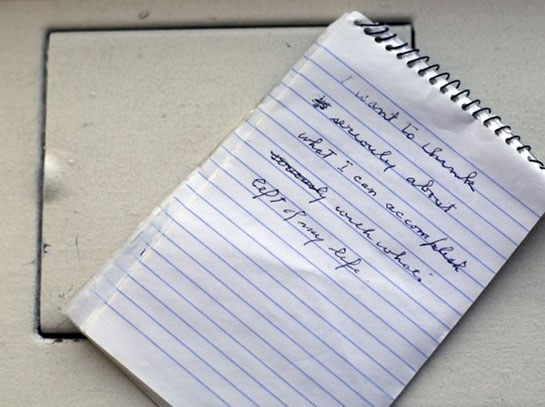 I want to think
seriously about
what I can accomplish
with what's
left of my life.